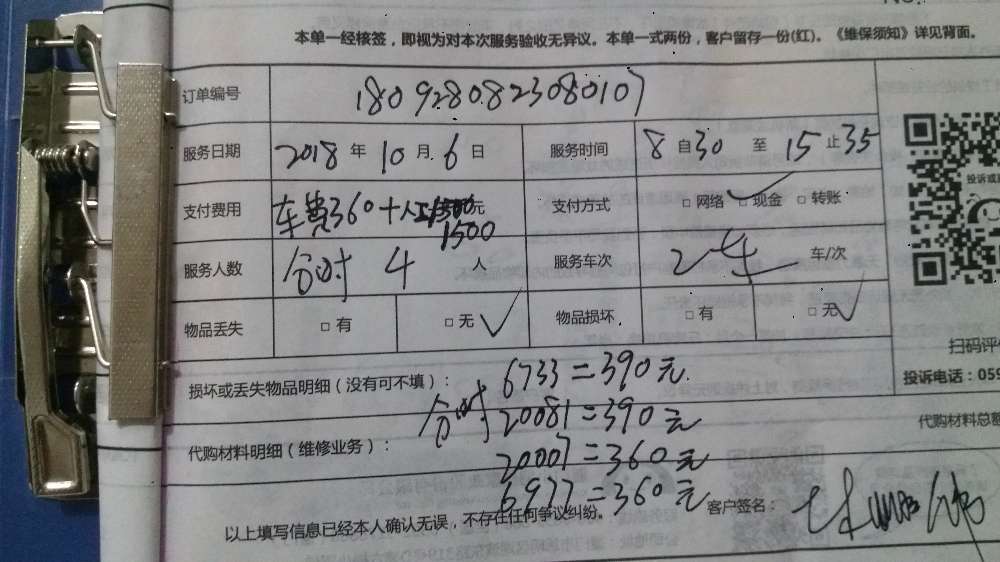 No.
本单一经核签，即视为对本次服务验收无异议。本单一式两份，客户留存一份(红)。《维保须知》详见背面。
订单编号 1809280823080107
服务日期 2018 年 10 月 6 日 服务时间 8 自 30 至 15 止 35
支付费用 车费360+人工 元 支付方式 □ 网络 □ 现金 □ 转账
1500
服务人数 4 人 服务车次 2 车/次
物品丢失 □ 有 □ 无 ✓ 物品损坏 □ 有 □ 无 ✓
投诉或
扫码评
投诉电话：059
损坏或丢失物品明细（没有可不填）： 6733=390元
20081=390元
代购材料明细（维修业务）： 代购材料总额
20007=360元
6977=360元
以上填写信息已经本人确认无误，不存在任何争议纠纷。 客户签名：